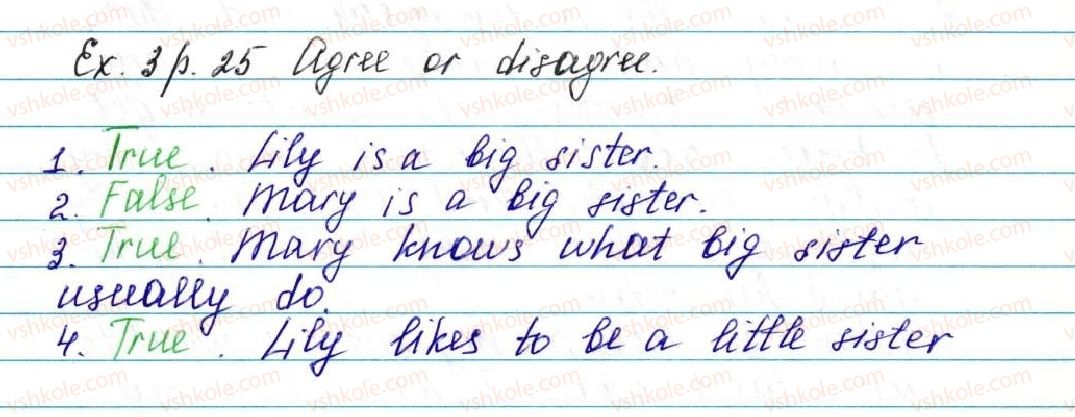 Ex. 3 p. 25 Agree or disagree.
1. True. Lily is a big sister.
2. False. Mary is a big sister.
3. True. Mary knows what big sister
usually do.
4. True. Lily likes to be a little sister